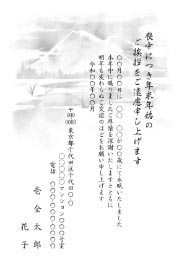 喪中につき年末年始の
ご挨拶をご遠慮申し上げます
〇〇月〇〇日に 〇〇 〇〇が〇〇歳にて永眠いたしました
本年中に賜りましたご厚情を深謝いたしますとともに
明年も変わらぬご交誼のほどをお願い申し上げます
令和〇〇年〇〇月
〒000-0000
東京都千代田区千代田〇-〇
〇〇〇〇〇マンション〇〇〇号室
電話 〇〇〇〇〇〇〇〇〇〇
壱金太郎
花子